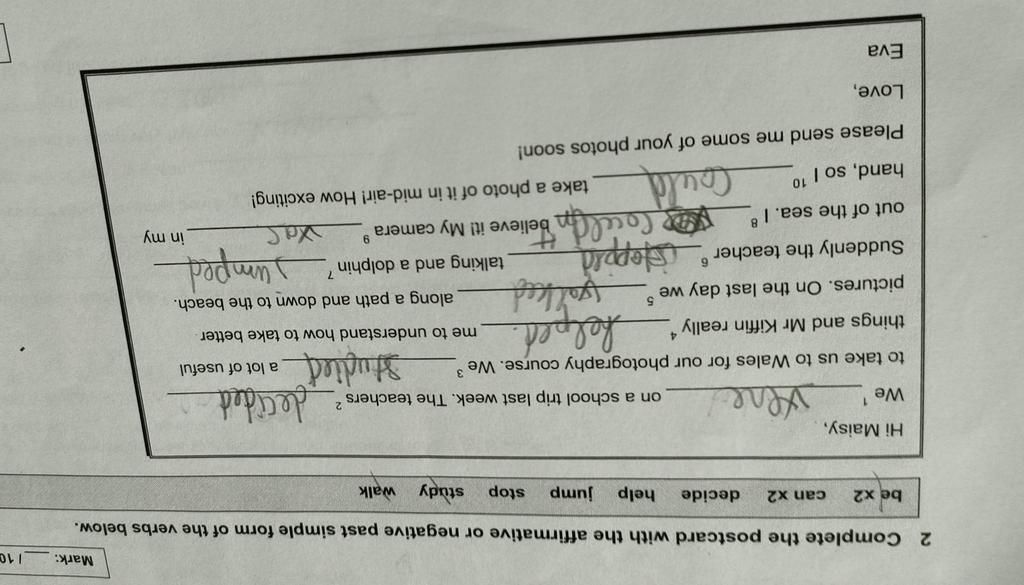 Mark: ___ / 10
2 Complete the postcard with the affirmative or negative past simple form of the verbs below.
be x2 can x2 decide help jump stop study walk
Hi Maisy,
We 1 were on a school trip last week. The teachers 2 decided
to take us to Wales for our photography course. We 3 studied a lot of useful
things and Mr Kiffin really 4 helped. me to understand how to take better
pictures. On the last day we 5 walked along a path and down to the beach.
Suddenly the teacher 6 stopped talking and a dolphin 7 Jumped
out of the sea. I 8 couldn't believe it! My camera 9 was in my
hand, so I 10 could take a photo of it in mid-air! How exciting!
Please send me some of your photos soon!
Love,
Eva